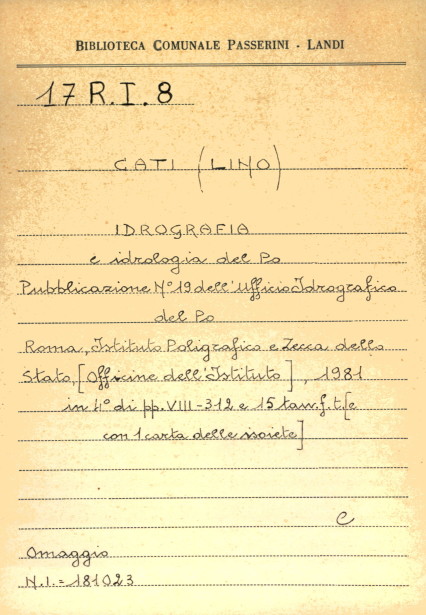 BIBLIOTECA COMUNALE PASSERINI - LANDI
17 R.I.8
CATI (LINO)
IDROGRAFIA
e idrologia del Po
Pubblicazione N° 19 dell'Ufficio Idrografico
del Po
Roma, Istituto Poligrafico e Zecca dello
Stato, [Officine dell'Istituto], 1981
in 4° di pp. VIII-312 e 15 tav. f. t. [e
con 1 carta delle isoiete]
C
Omaggio
N.I. = 181023